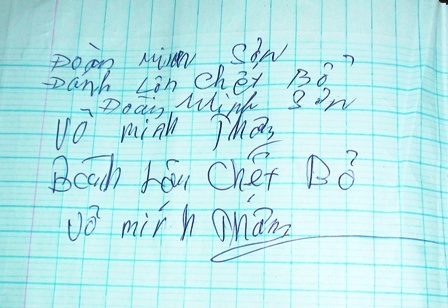 Đoàn Minh Sơn
Đánh Lộn Chết Bỏ
Đoàn Minh Sơn
Võ minh Thắng
Lộn Chết Bỏ
Võ minh Thắng